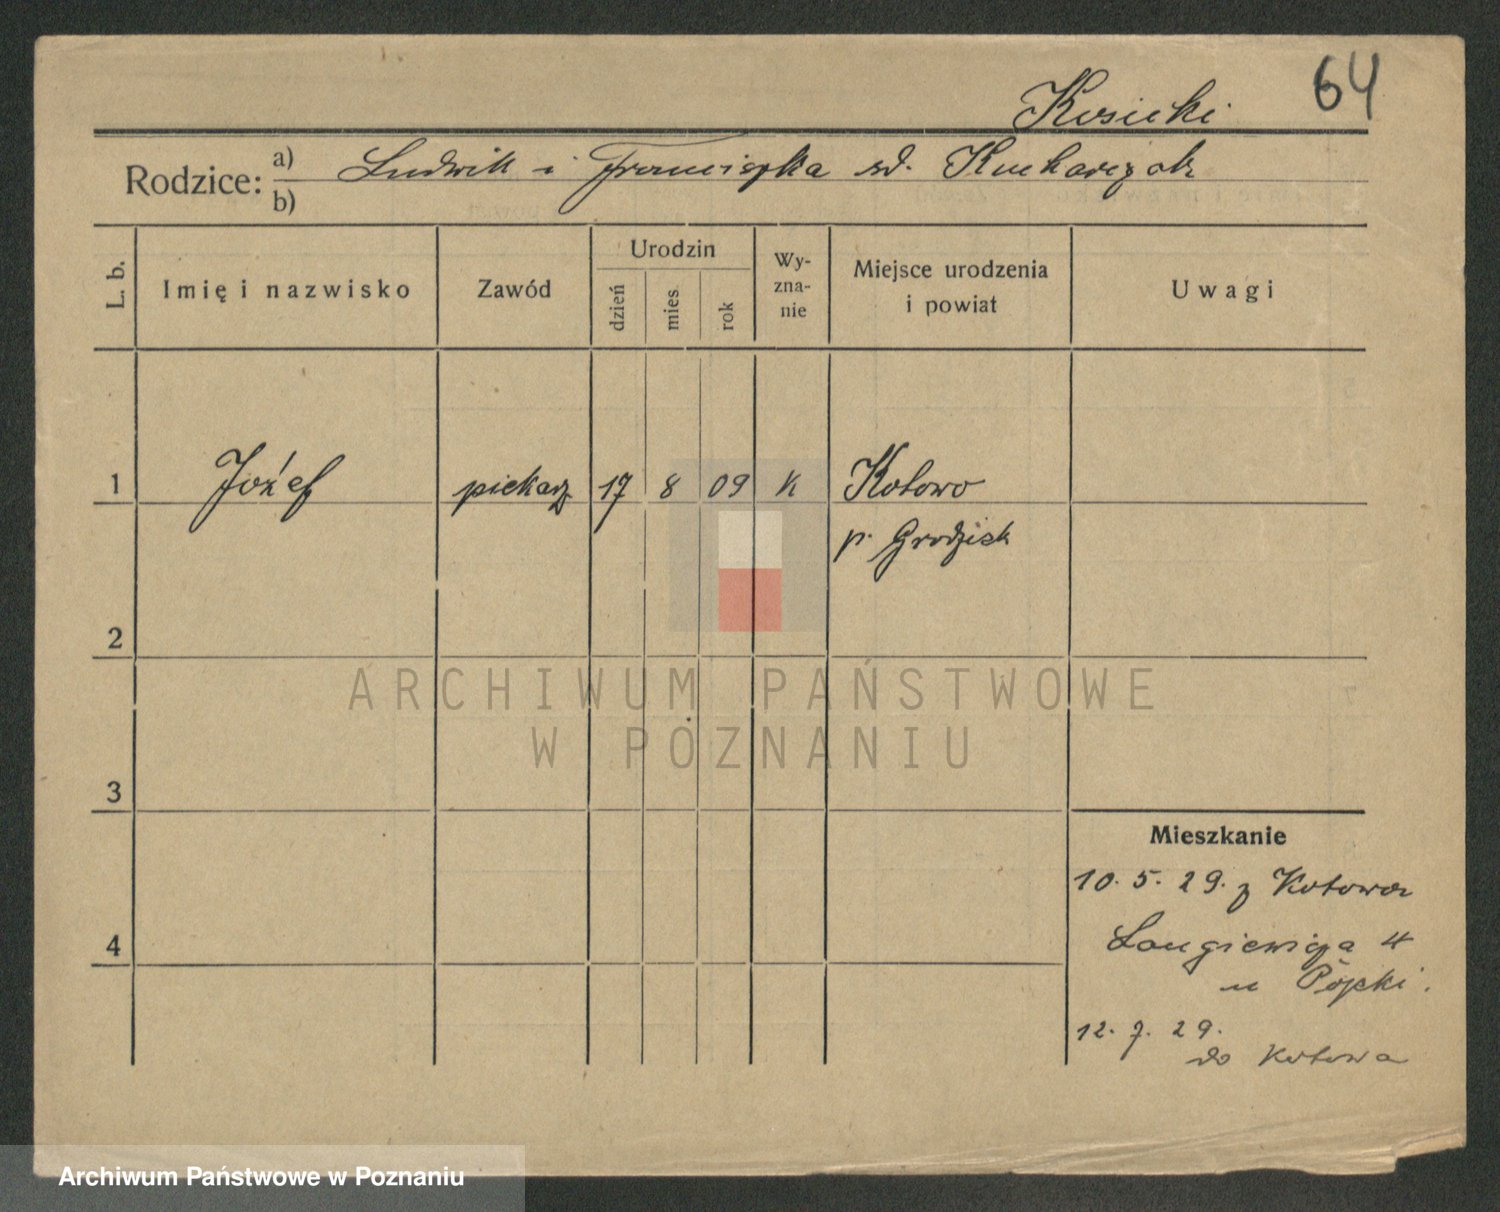 64
Kosicki
Rodzice: a) Ludwik i Franciszka zd. Kucharczak
b)
L. b. Imię i nazwisko Zawód Urodzin dzień mies rok Wy-zna-nie Miejsce urodzenia i powiat Uwagi
1 Józef piekarz 17 8 09 K Kotowo
p. Grodzisk
2
3
4
Mieszkanie
10. 5. 29. z Kotowa
Langiewicza 4
u
12. 7. 29.
do Kotowa
ARCHIWUM PAŃSTWOWE
W POZNANIU
Archiwum Państwowe w Poznaniu